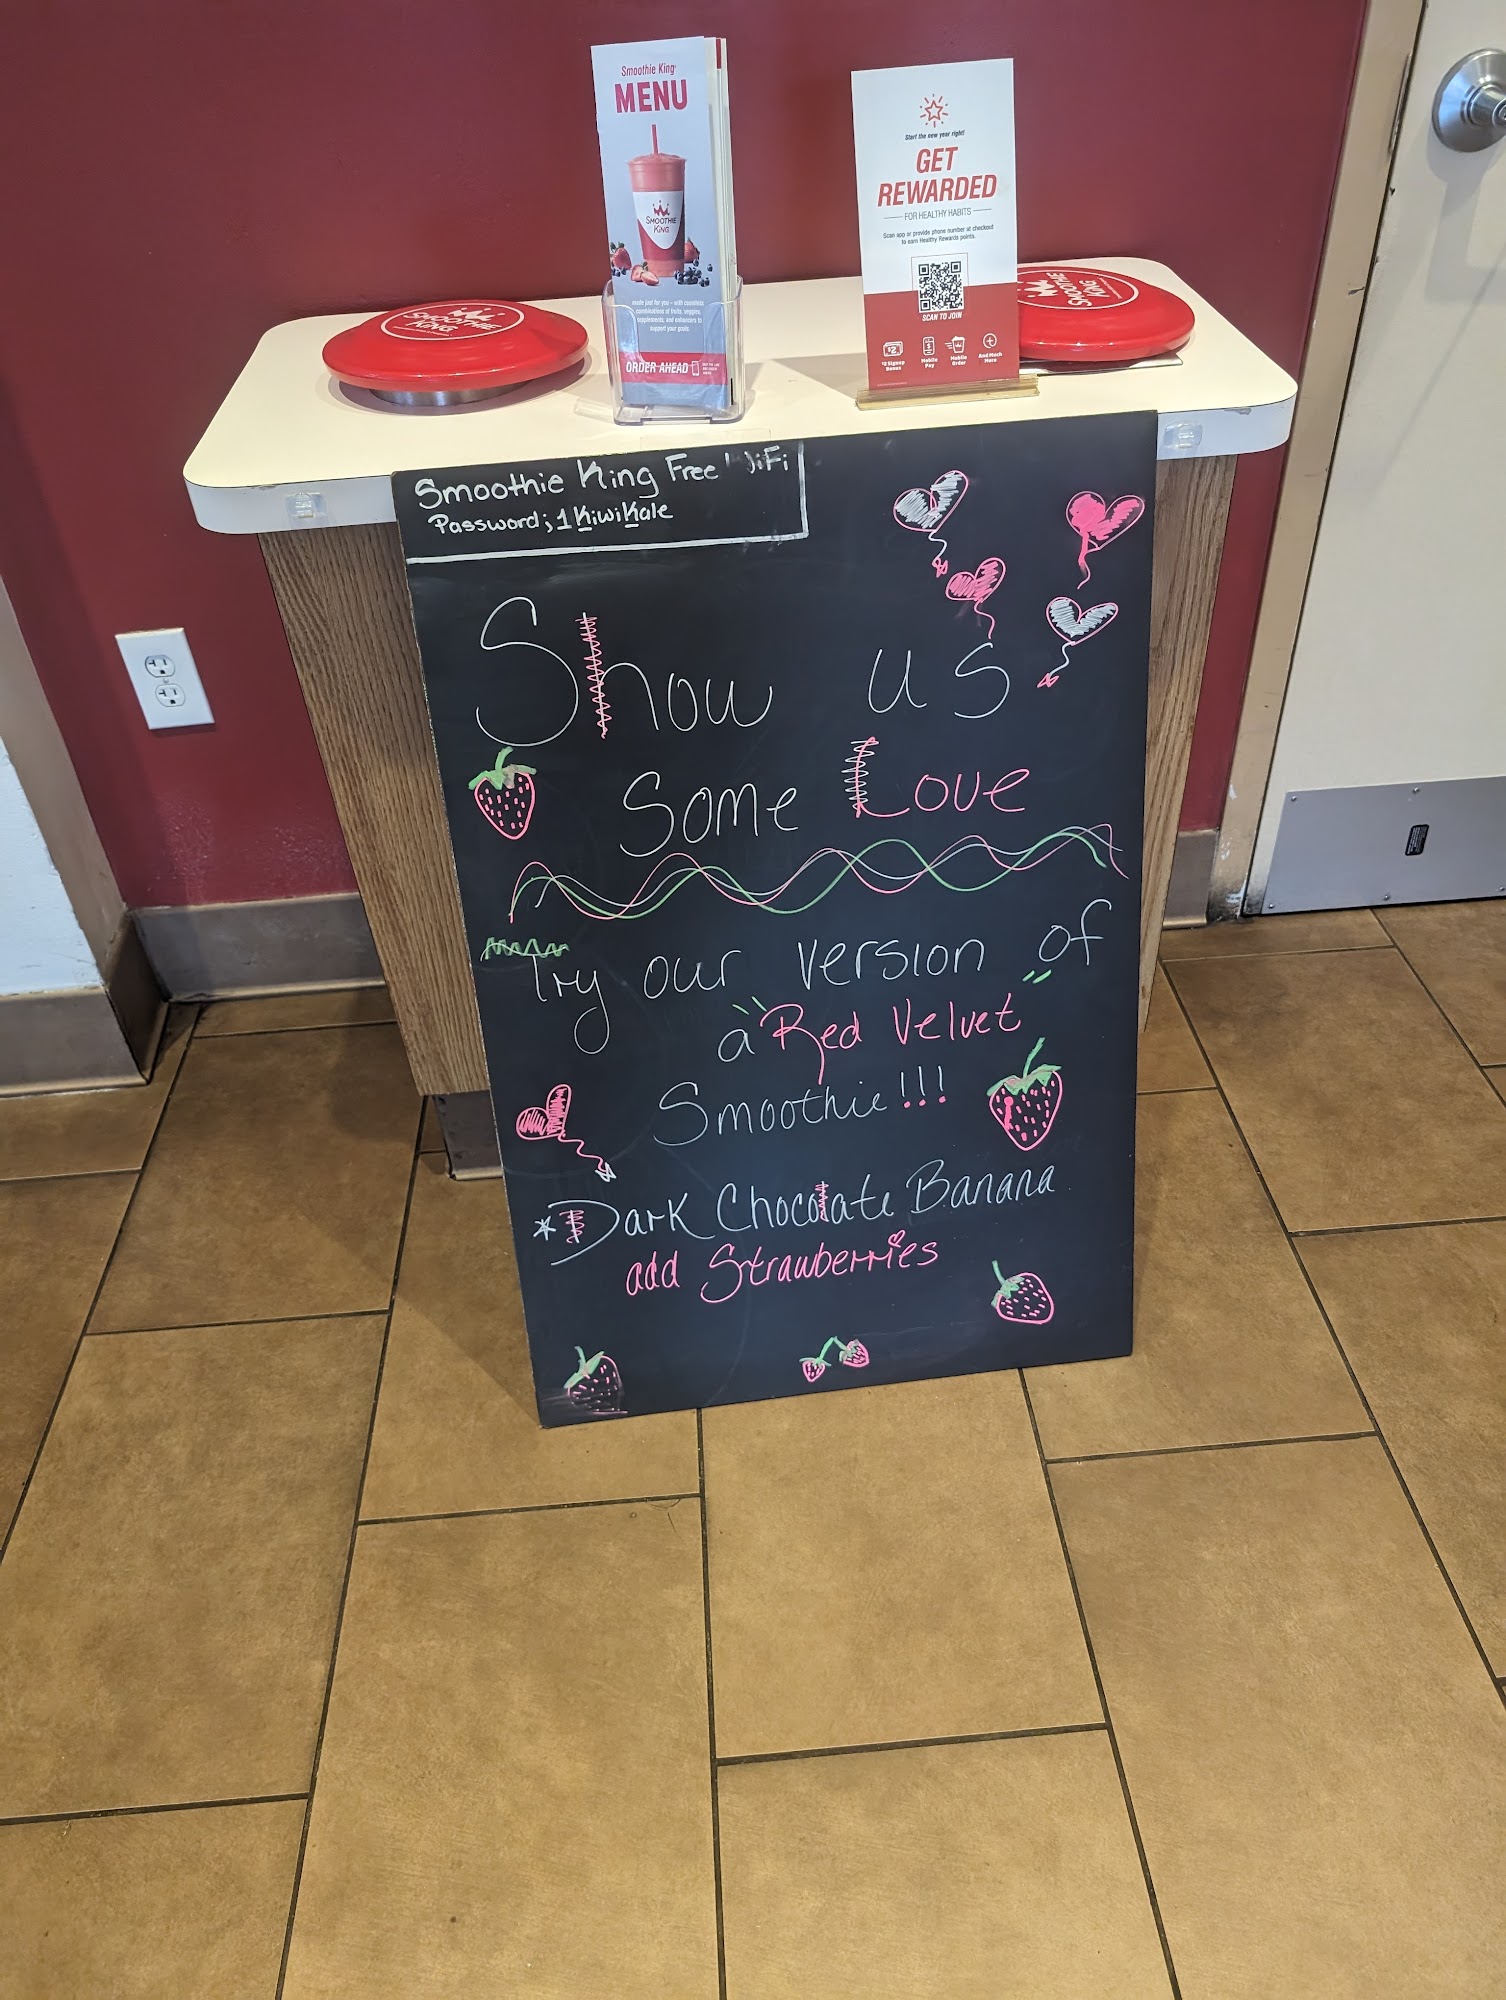 Smoothie King
MENU
SMOOTHIE
KING
made just for you – with countless
combinations of fruits, veggies,
supplements, and enhancers to
support your goals.
ORDER AHEAD
Start the new year right!
GET
REWARDED
FOR HEALTHY HABITS
Scan app or provide phone number at checkout
to earn Healthy Rewards points.
SCAN TO JOIN
$2
$2 Signup
Bonus
Mobile
Pay
Mobile
Order
And Much
More
SMOOTHIE
KING
SMOOTHIE
KING
Smoothie King Free WiFi
Password; 1KiwiKale
Show us
Some Love
Try our version of
a "Red Velvet"
Smoothie!!!
*Dark Chocolate Banana
add Strawberries